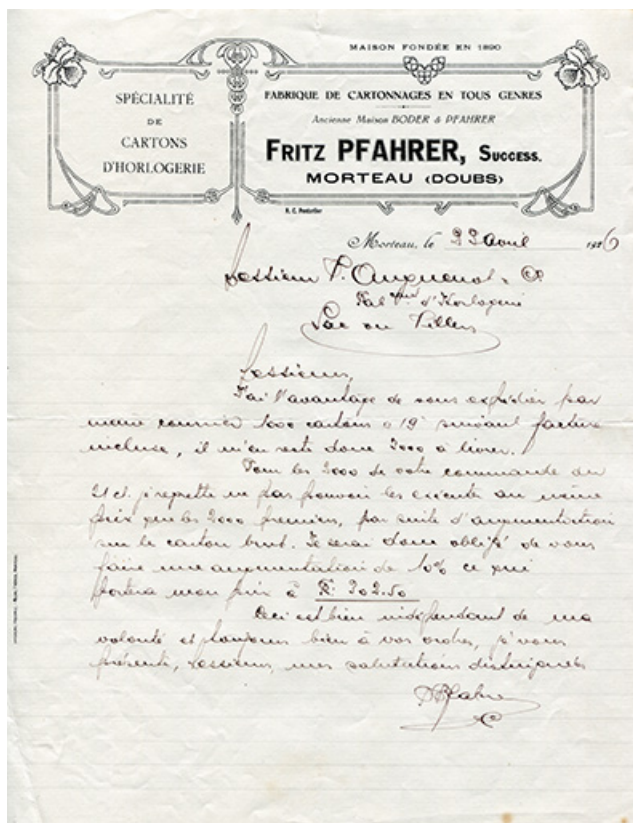 MAISON FONDÉE EN 1890
SPÉCIALITÉ
DE
CARTONS
D'HORLOGERIE
FABRIQUE DE CARTONNAGES EN TOUS GENRES
Ancienne Maison BODER & PFAHRER
FRITZ PFAHRER, SUCCESS.
MORTEAU (DOUBS)
R. C. Pontarlier
Morteau, le 22 avril 1926
Messieurs P. & Cie
Fab d'Horlogerie
Lac ou Villers
Messieurs,
J'ai l'avantage de vous expédier par
même courrier 1000 cartons 19 suivant facture
incluse, il m'en reste donc 2000 à livrer.
Pour les 2000 de votre commande du
21 ct. je regrette ne pas pouvoir les exécuter au même
prix que les 2000 premiers, par suite d'augmentation
sur le carton brut. Je serai donc obligé de vous
faire une augmentation de 10% ce qui
portera mon prix à Fr. 202.50
Ceci est bien indépendant de ma
volonté et toujours bien à vos ordres, je vous
présente, Messieurs, mes salutations distinguées
Pfahrer